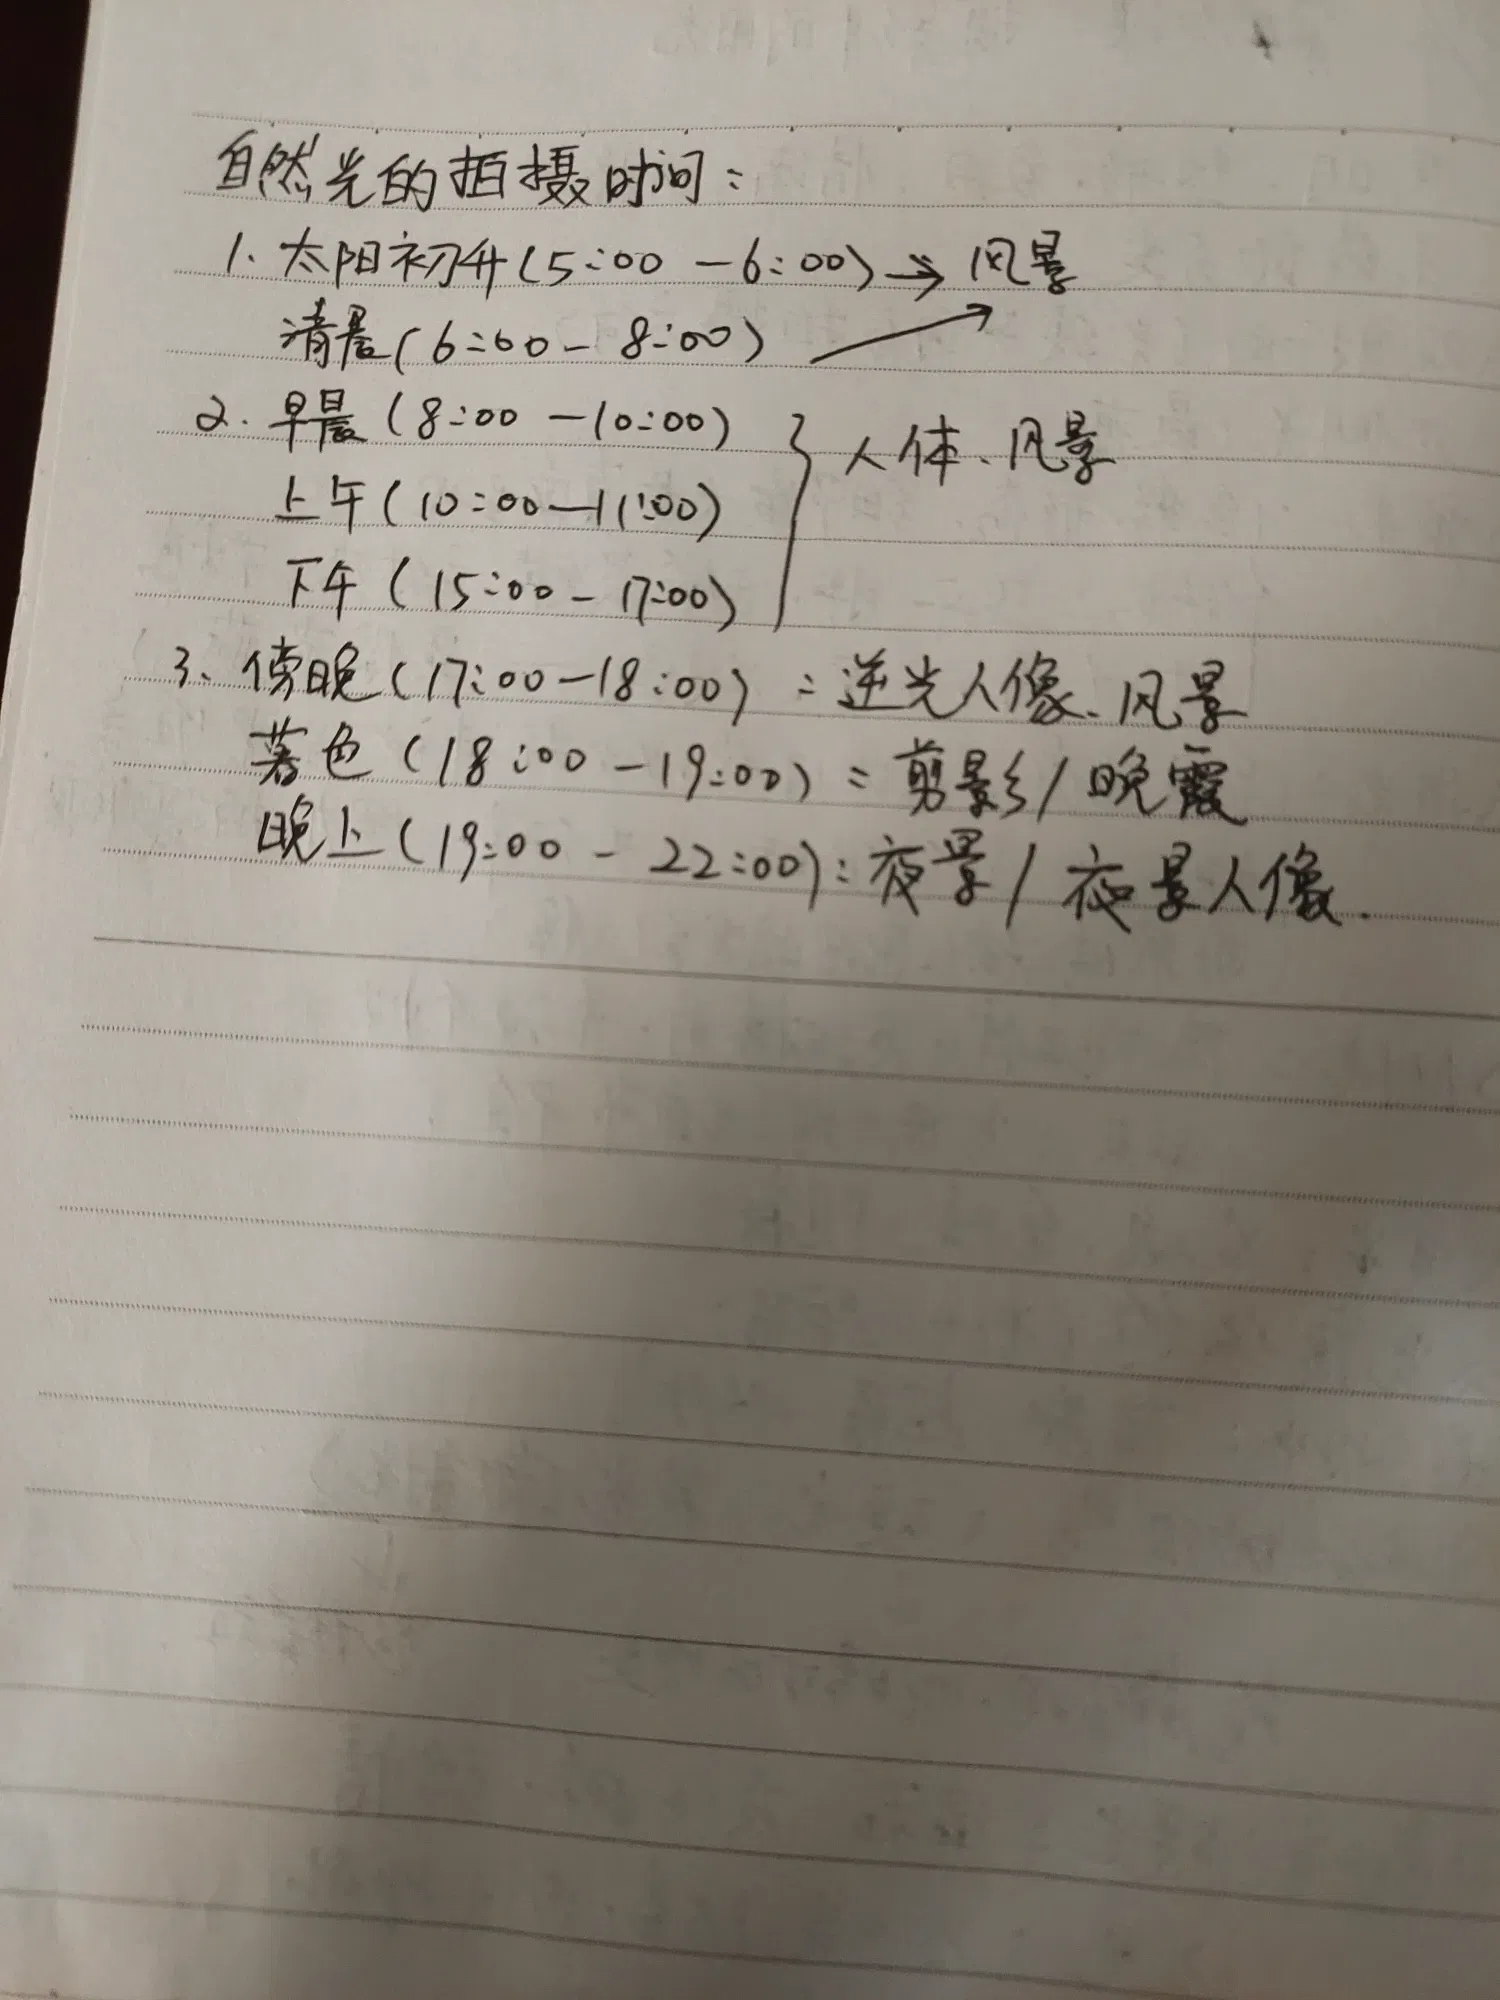 自然光的拍摄时间:
1. 太阳初升(5:00-6:00)→风景
清晨(6:00-8:00)
2. 早晨(8:00-10:00)
人体、风景
上午(10:00-11:00)
下午(15:00-17:00)
3、傍晚(17:00-18:00):逆光人像、风景
暮色(18:00-19:00):剪影/晚霞
晚上(19:00-22:00):夜景/夜景人像.